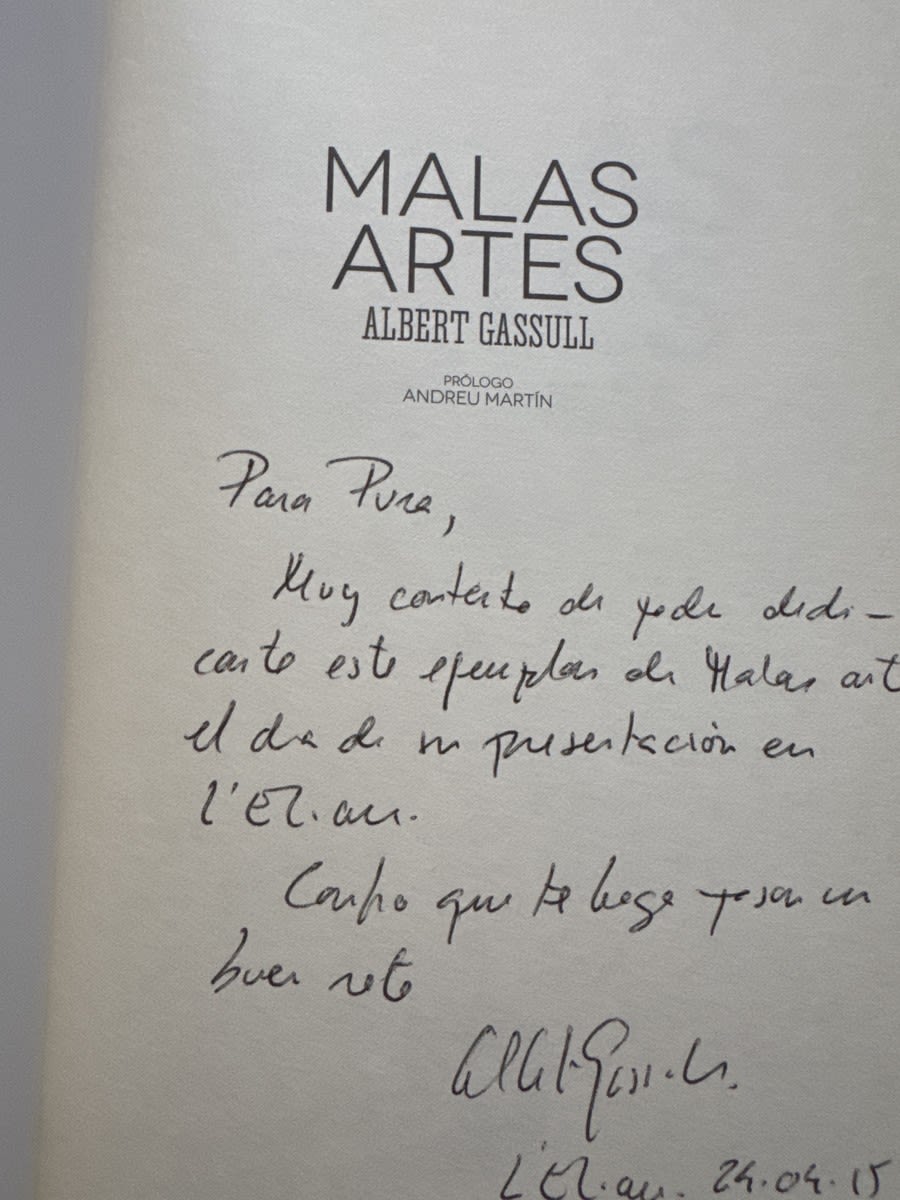 MALAS
ARTES
ALBERT GASSULL
PRÓLOGO
ANDREU MARTÍN
Para Pura,
Muy contento de poder dedi-
carte este ejemplar de Malas art
el día de su presentación en
l'Eliana.
Confío que te haga pasar un
buen rato
Albert Gassull.
L'Eliana. 24.04.15